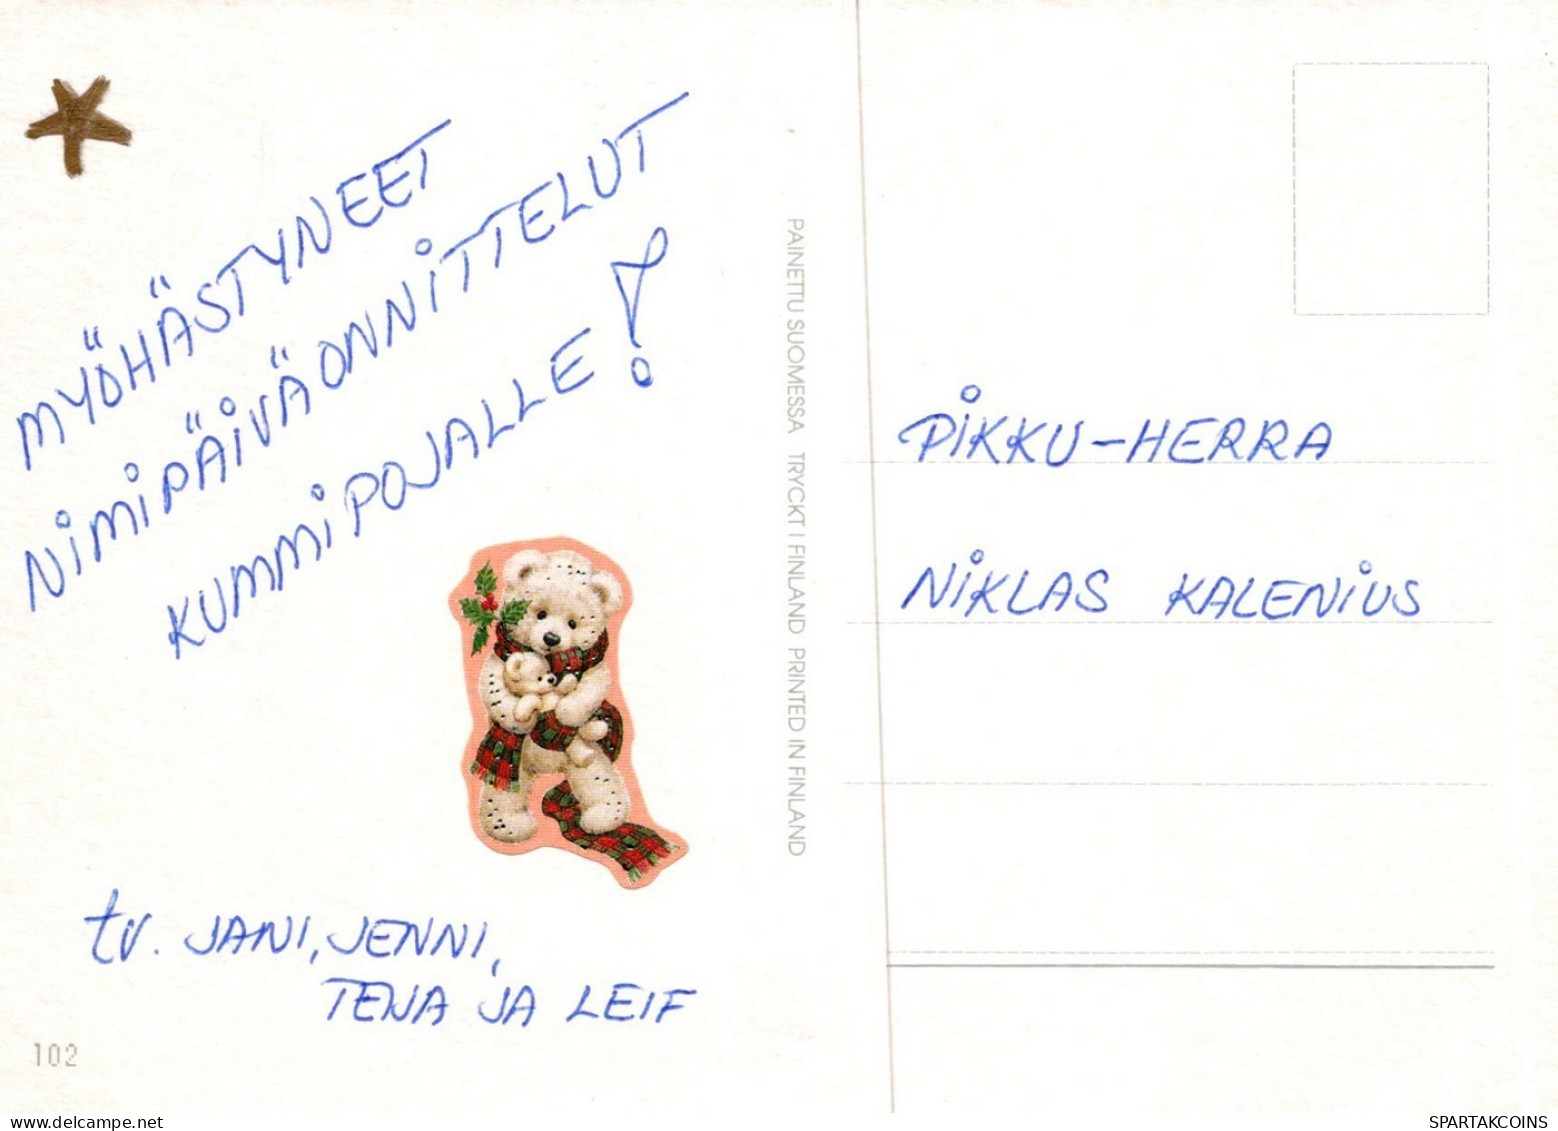 MYÖHÄSTYNEET
NIMIPÄIVÄONNITTELUT
KUMMIPOJALLE!
tv. JANI, JENNI,
TEIJA JA LEIF
102
PAINETTU SUOMESSA TRYCKT I FINLAND PRINTED IN FINLAND
PIKKU-HERRA
NIKLAS KALENIUS
SPARTAKCOINS